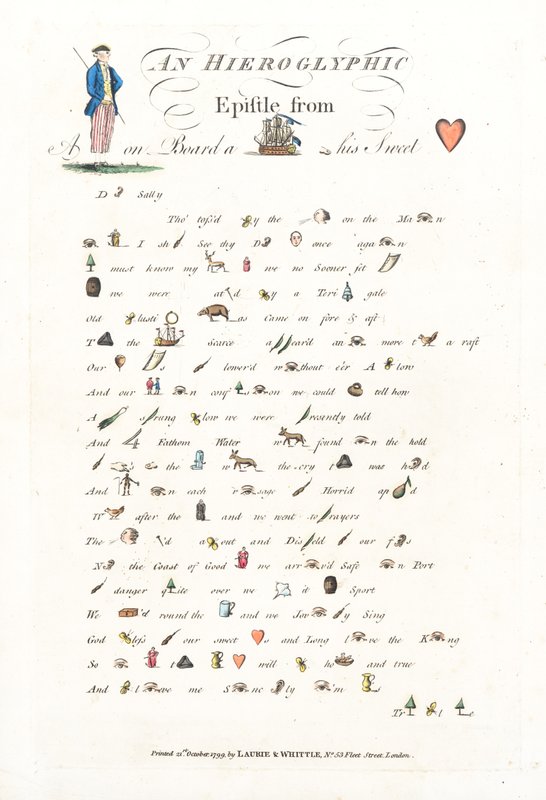 AN HIEROGLYPHIC
Epiſtle from
A on Board a his Sweet
D Sally
Tho' toſs'd y the on the Ma n
I sh See thy D once aga n
must know my we no Sooner ſet
we were at d y a Teri gale
Old lusti as Came on fore & aft
T the scarce a ear'd an more t a raft
Our s lower'd w thout e'er A low
And our n conf s on we could tell how
A s rung low we were resently told
And 4 Fathom Water w found n the hold
s the w the cry t was h d
And n each v sage Horrid ap d
W after the and we went to rayers
The 'd a out and Dis eld our f s
N the Coast of Good we arr v'd Safe n Port
danger q ite over we it Sport
We 'd round the and we Jov y Sing
God leſs our sweet s and Long l ve the K ng
So t will ho and true
And l eve me S nc ly 'm s
Tr t l e
Printed 21st October 1799, by LAURIE & WHITTLE, No. 53 Fleet Street, London.